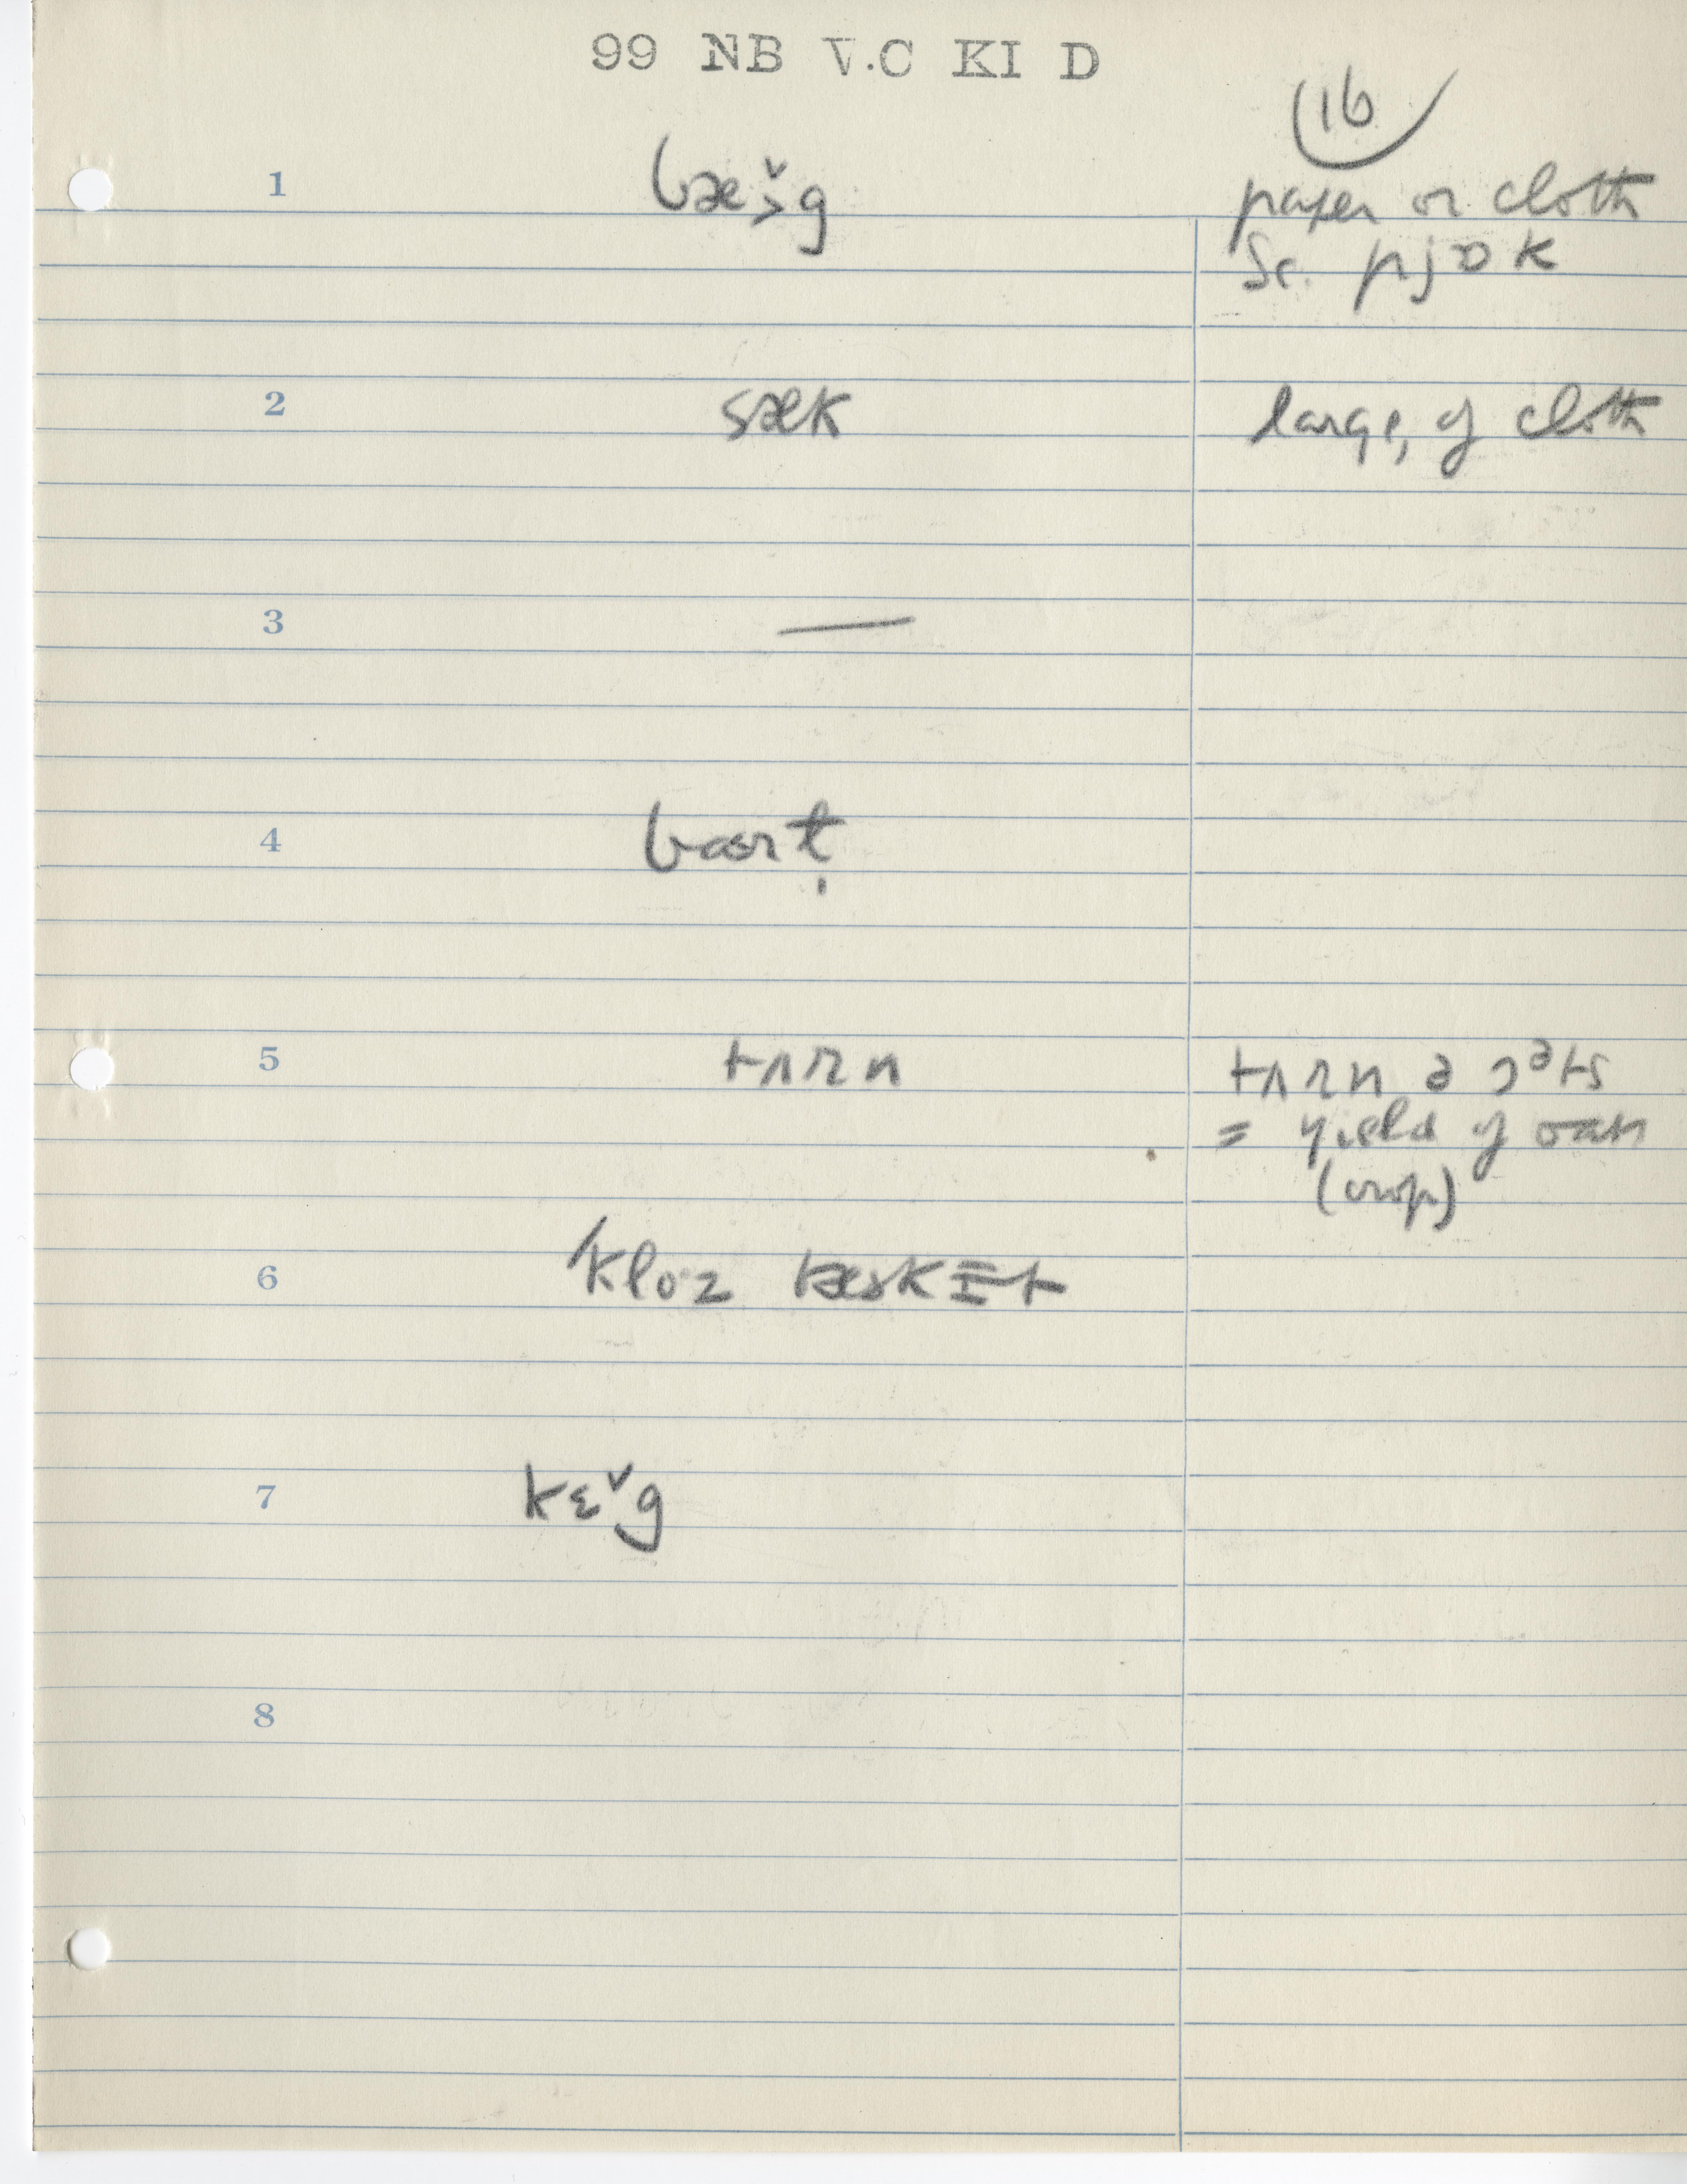 99 NB V.C KI D
16
1 bæ˃̌g paper or cloth
Sc. pjɒk
2 sæk large, of cloth
3 —
4
5 tʌrn tʌrn ə ɔᵊts
= yield of oats
(crop)
6 kloˑz bæskɪt
7 kɛ̌g
8